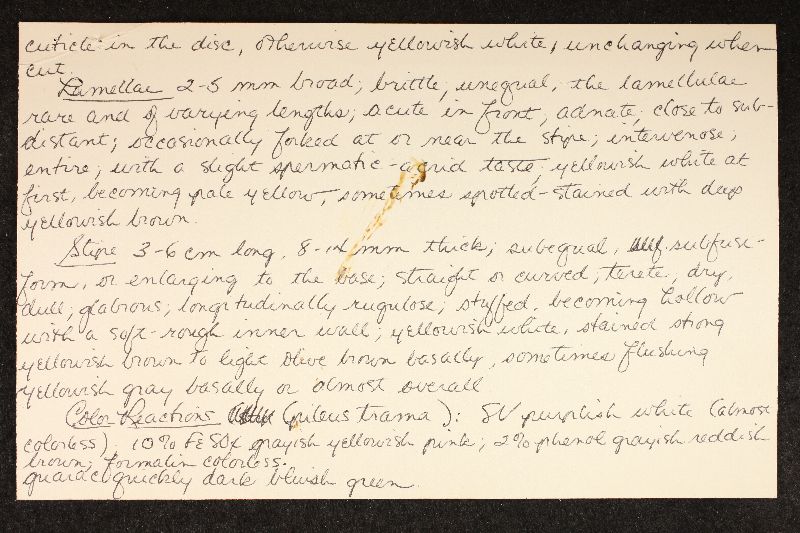 cuticle in the disc, otherwise yellowish white, unchanging when
cut.
Lamellae 2-5 mm broad; brittle, unequal, the lamellulae
rare and of varying lengths; acute in front, adnate; close to sub-
distant; occasionally forked at or near the stipe; intervenose;
entire; with a slight spermatic-acrid taste, yellowish white at
first, becoming pale yellow, sometimes spotted-stained with deep
yellowish brown.
Stipe 3-6 cm long, 8-14 mm thick; subequal, subfusi-
form, or enlarging to the base; straight or curved, terete, dry,
dull; glabrous; longitudinally rugulose; stuffed, becoming hollow
with a soft-rough inner wall; yellowish white, stained strong
yellowish brown to light olive brown basally, sometimes flushing
yellowish gray basally or almost overall
Color Reactions (pileus trama): SV purplish white (almost
colorless). 10% FeSO4 grayish yellowish pink; 2% phenol grayish reddish
brown; formalin colorless.
guaiac quickly dark bluish green.